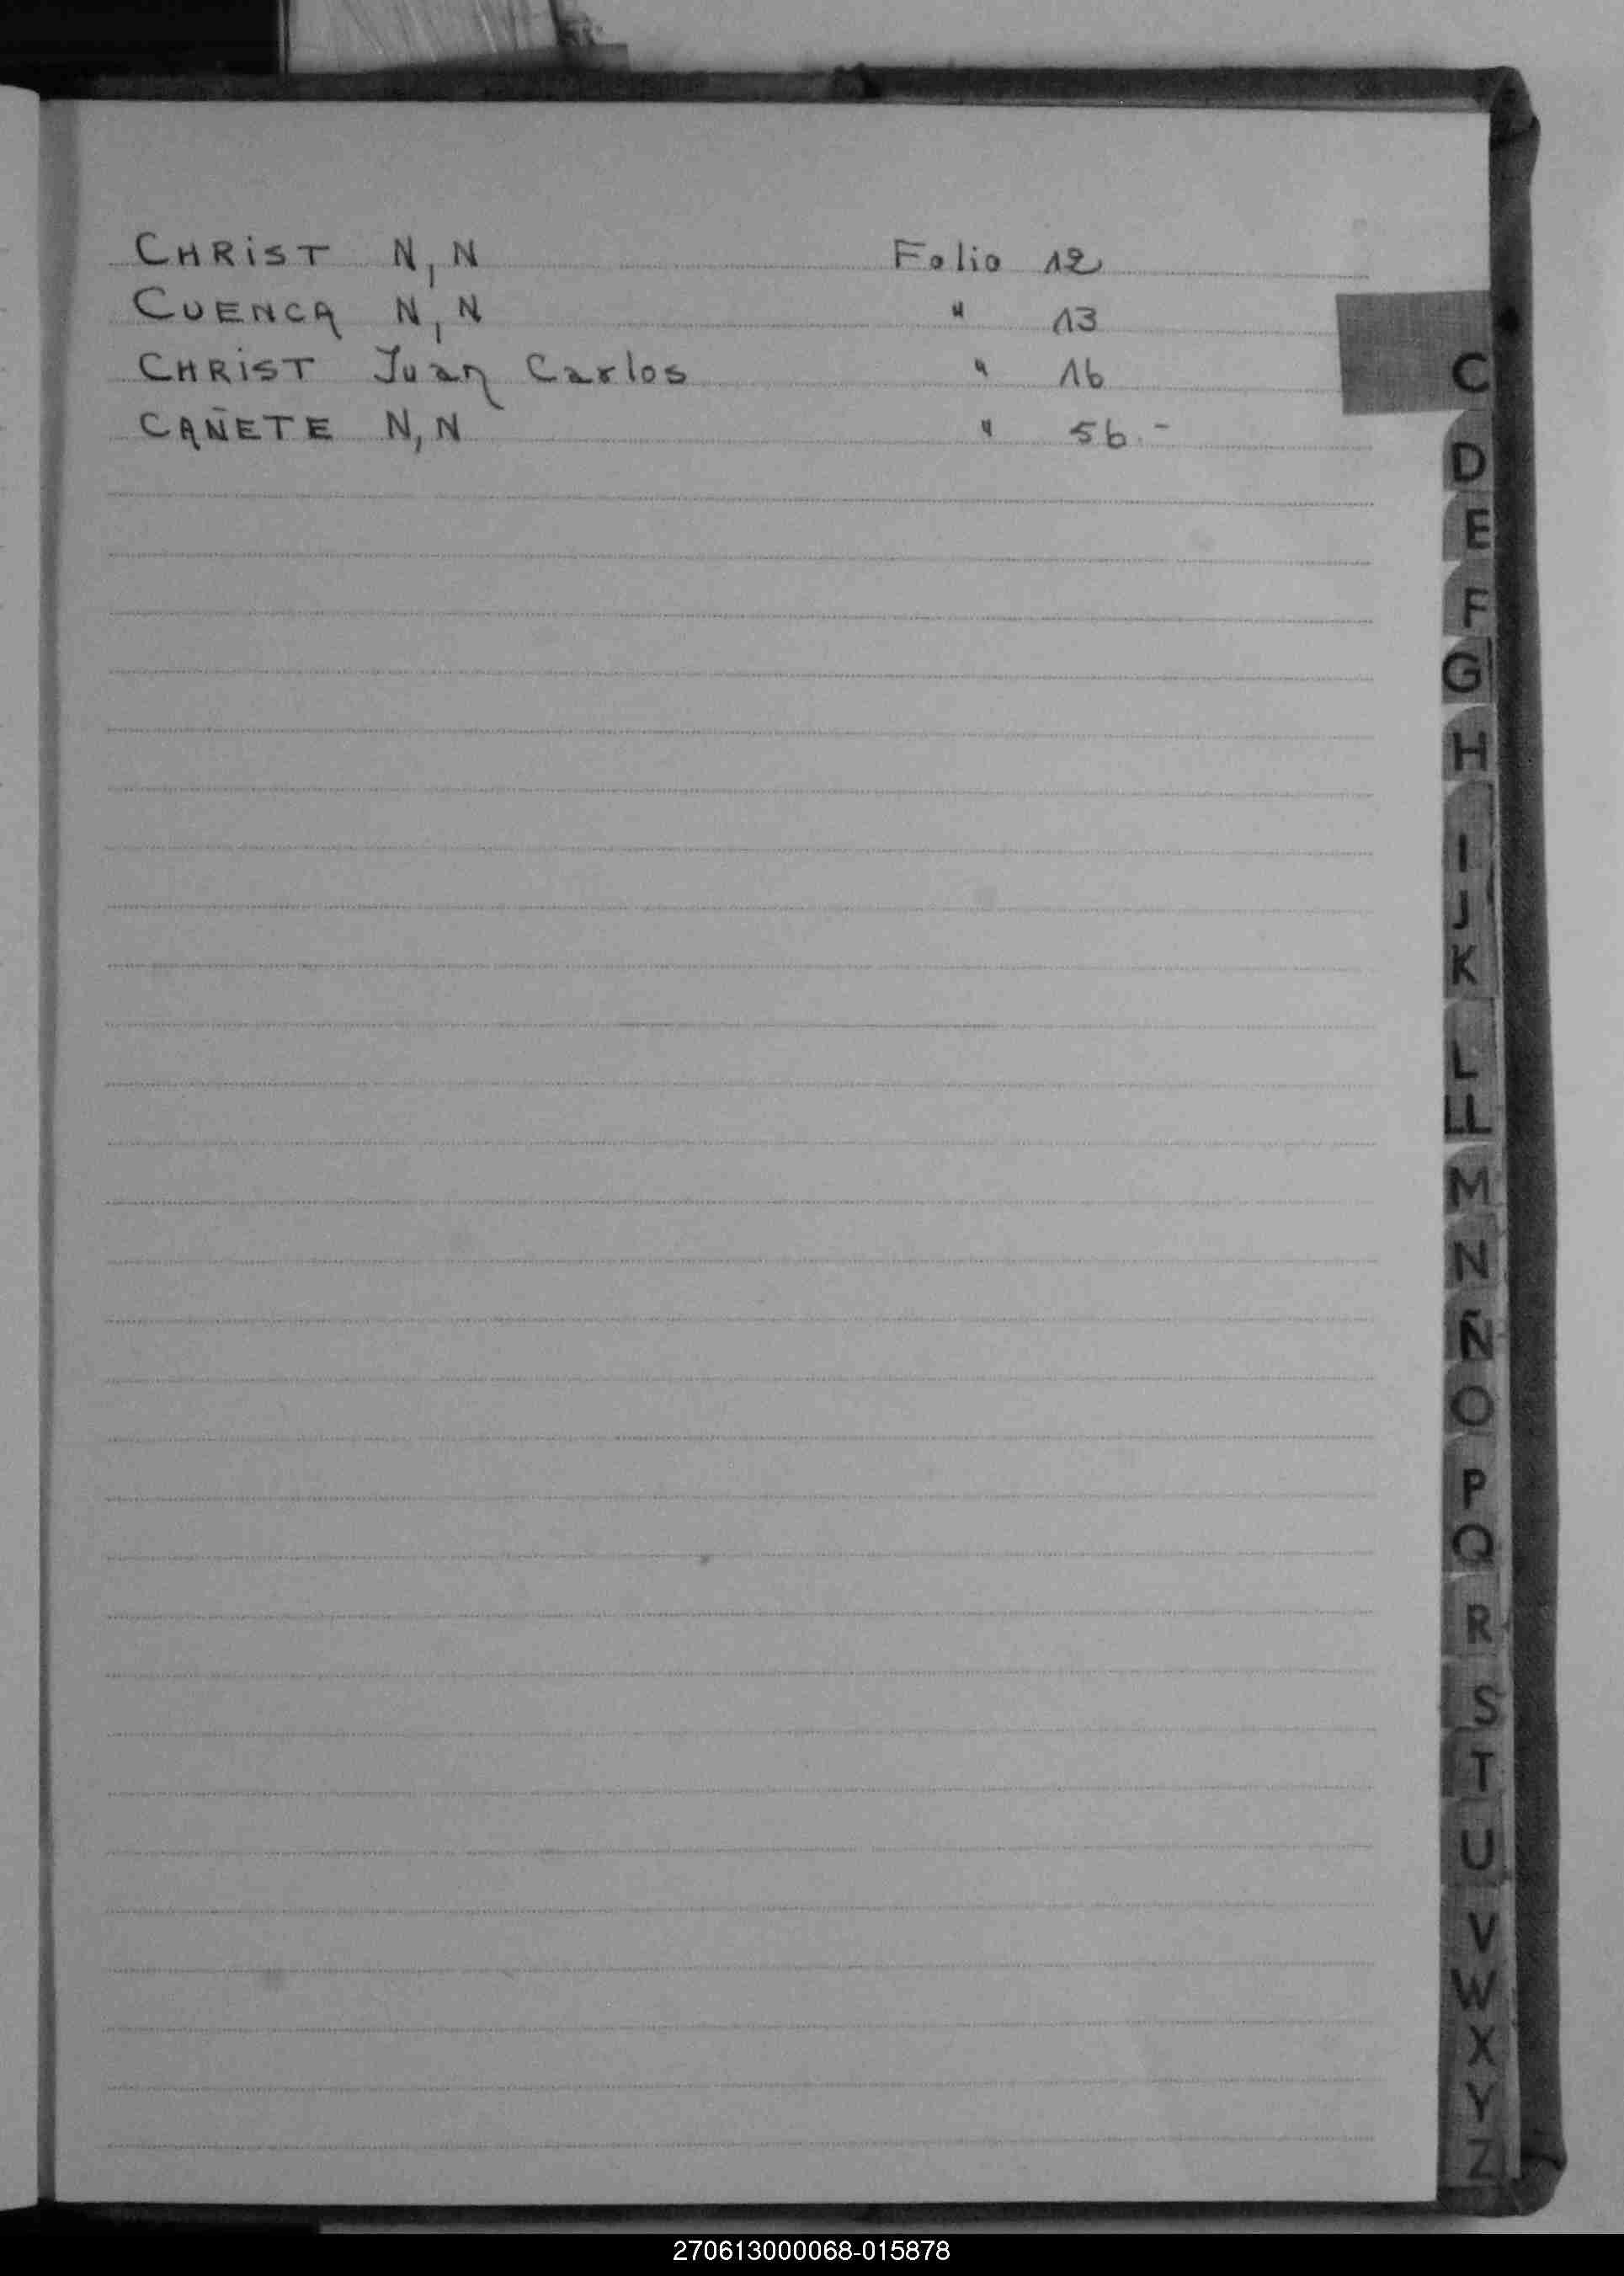 CHRiST N,N Folio 12
CUENCA N,N " 13
CHRiST Juan Carlos " 16
CAÑETE N,N " 56.-
C
D
E
F
G
H
I
J
K
L
LL
M
N
Ñ
O
P
Q
R
S
T
U
V
W
X
Y
Z
270613000068-015878